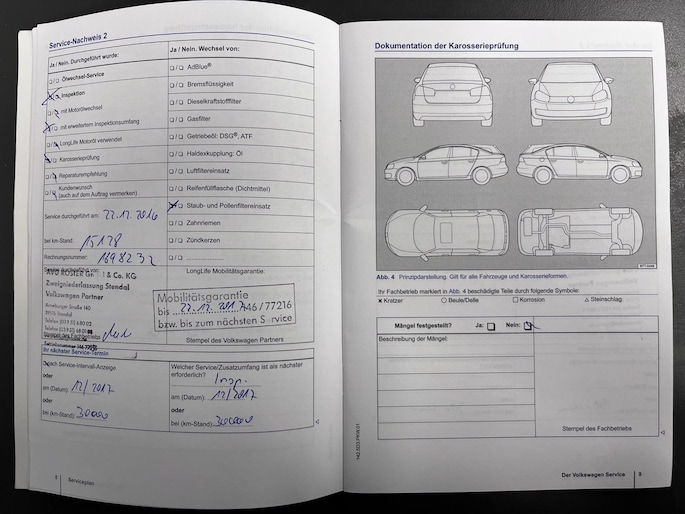 Service-Nachweis 2
Ja / Nein. Durchgeführt wurde:
Ölwechsel-Service
Inspektion
mit Motorölwechsel
mit erweitertem Inspektionsumfang
LongLife Motoröl verwendet
Karosserieprüfung
Reparaturempfehlung
Kundenwunsch
(auch auf dem Auftrag vermerken).
Service durchgeführt am: 22.12.2016
bei km-Stand: 15128
Rechnungsnummer: 1698232
Service durchgeführt von:
& Co. KG
Zweigniederlassung Stendal
Volkswagen Partner
39576 Stendal
Ihr nächster Service-Termin
nach Service-Intervall-Anzeige
oder
am (Datum): 12/2017
oder
bei (km-Stand): 30000
Ja / Nein. Wechsel von:
AdBlue®
Bremsflüssigkeit
Dieselkraftstofffilter
Gasfilter
Getriebeöl: DSG®, ATF
Haldexkupplung: Öl
Luftfiltereinsatz
Reifenfüllflasche (Dichtmittel)
Staub- und Pollenfiltereinsatz
Zahnriemen
Zündkerzen
LongLife Mobilitätsgarantie:
Mobilitätsgarantie
bis 22.12.2017 746/77216
bzw. bis zum nächsten Service
Stempel des Volkswagen Partners
Welcher Service/Zusatzumfang ist als nächster
erforderlich? Insp.
am (Datum): 12/2017
oder
bei (km-Stand): 30000
Serviceplan
Dokumentation der Karosserieprüfung
Abb. 4 Prinzipdarstellung. Gilt für alle Fahrzeuge und Karosserieformen.
Ihr Fachbetrieb markiert in Abb. 4 beschädigte Teile durch folgende Symbole:
× Kratzer ○ Beule/Delle □ Korrosion △ Steinschlag
Mängel festgestellt? Ja: Nein:
Beschreibung der Mängel:
Stempel des Fachbetriebs
Der Volkswagen Service